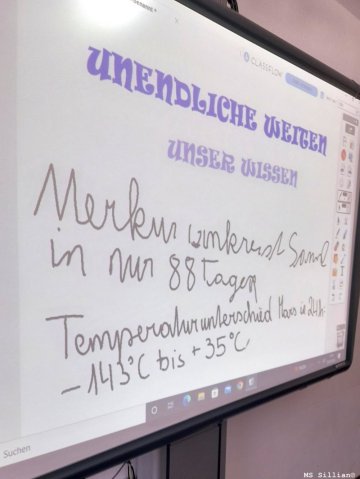 CLASSFLOW
UNENDLICHE WEITEN
UNSER WISSEN
Merkur umkreist Sonne
in nur 88 Tagen
Temperaturunterschied Mars in 24h.
-143°C bis +35°C
Suchen
MS Sillian©